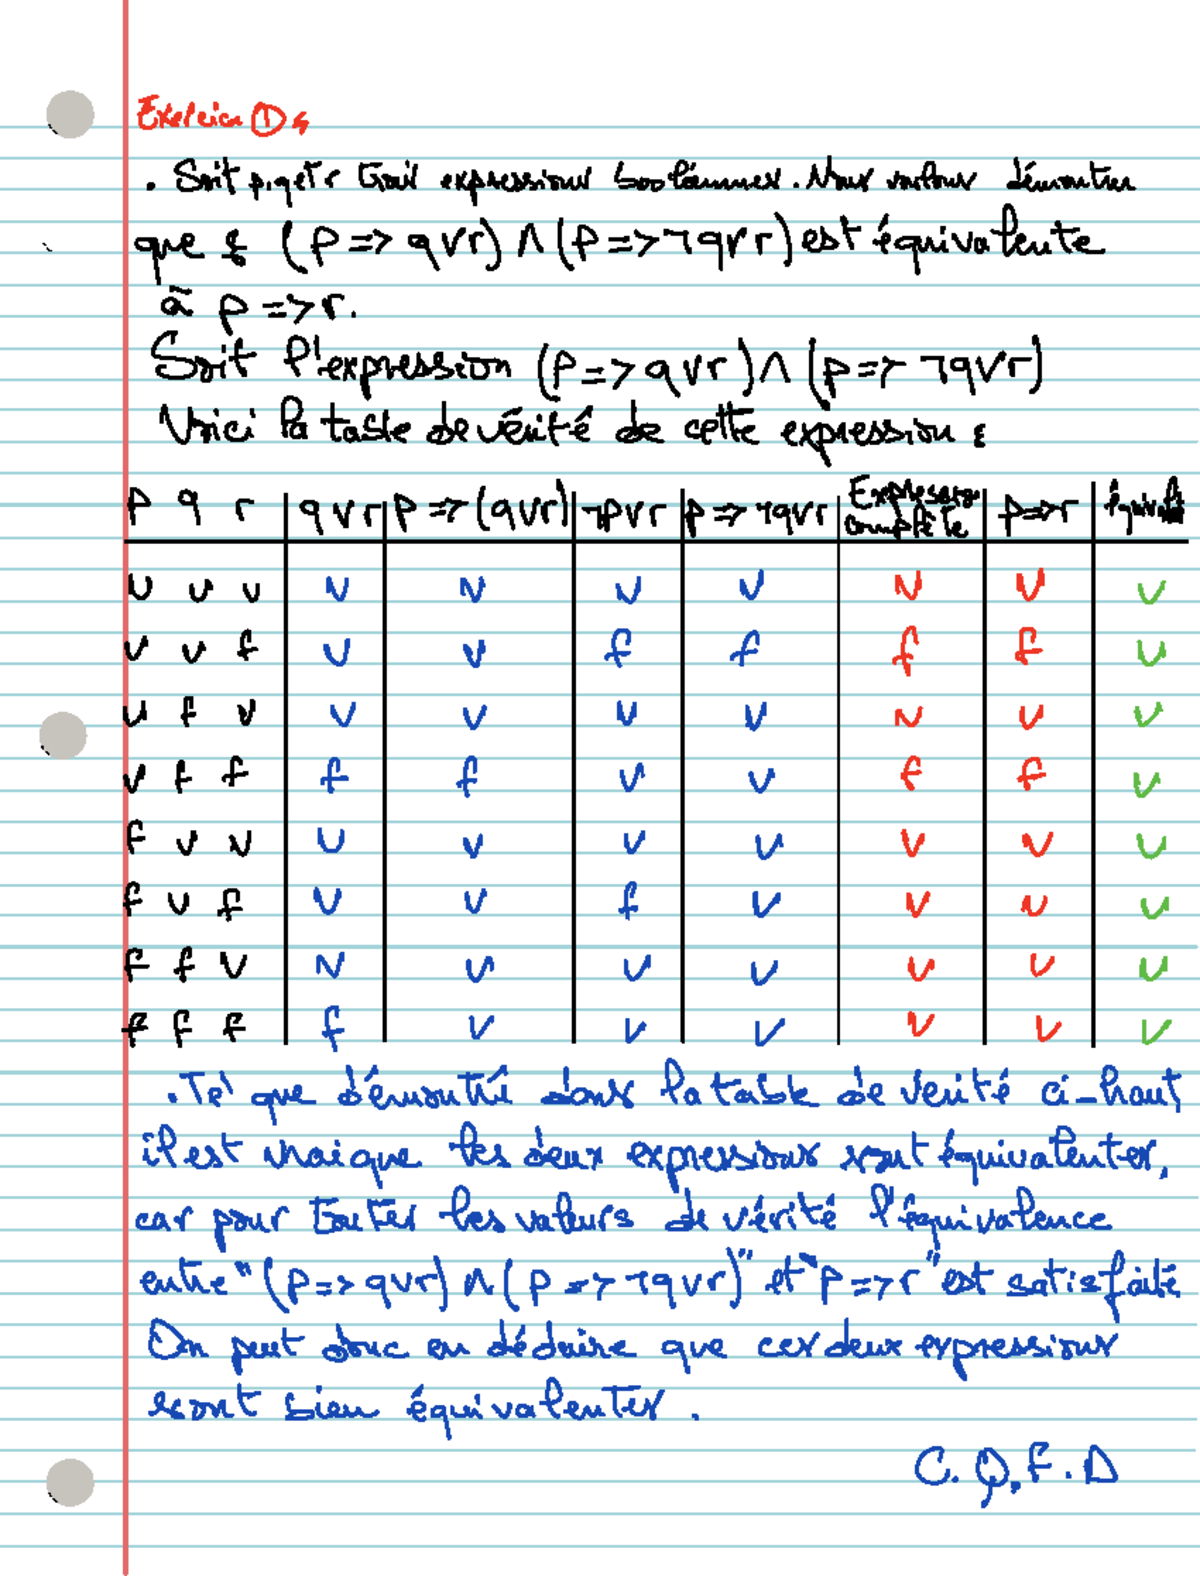 Exercice ① :
. Soit p, q et r trois expressions booléennes. Nous voulons démontrer
que : (p => q v r) ∧ (p => ¬q v r) est équivalente
à p => r.
Soit l'expression (p => q v r) ∧ (p => ¬q v r)
Voici la table de vérité de cette expression :
p q r | q v r | p => (q v r) | ¬p v r | p => ¬q v r | Expression complète | p => r | équivalent
v v v | v | v | v | v | v | v | v
v v f | v | v | f | f | f | f | v
v f v | v | v | v | v | v | v | v
v f f | f | f | v | v | f | f | v
f v v | v | v | v | v | v | v | v
f v f | v | v | f | v | v | v | v
f f v | v | v | v | v | v | v | v
f f f | f | v | v | v | v | v | v
. Tel que démontré dans la table de verité ci-haut,
il est vrai que les deux expressions sont équivalentes,
car pour toutes les valeurs de vérité l'équivalence
entre "(p => q v r) ∧ (p => ¬q v r)" et "p => r" est satisfaite
On peut donc en déduire que ces deux expressions
sont bien équivalentes.
C.Q.F.D